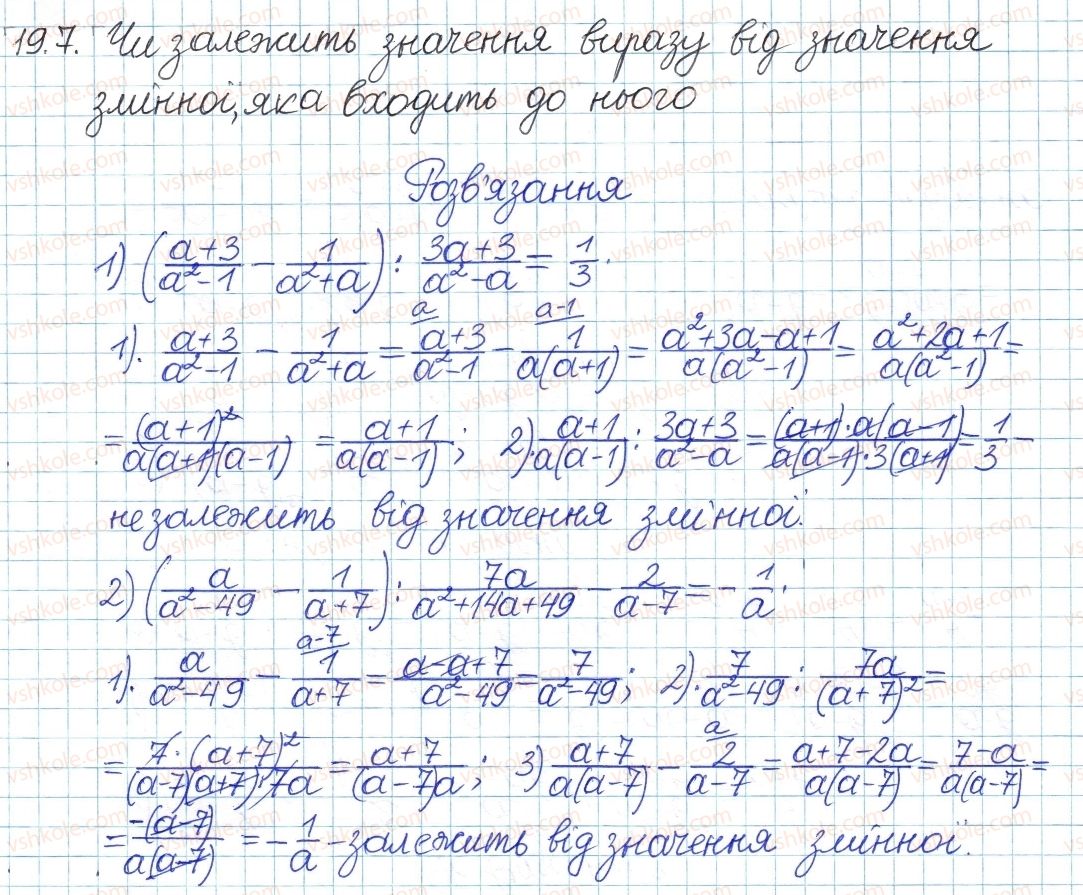 19.7. Чи залежить значення виразу від значення
змінної, яка входить до нього
Розв'язання
1) (a+3/a²-1 - 1/a²+a) : 3a+3/a²-a = 1/3.
1). a+3/a²-1 - 1/a²+a = a+3/a²-1 (a) - 1/a(a+1) (a-1) = a²+3a-a+1/a(a²-1) = a²+2a+1/a(a²-1) =
= (a+1)²/a(a+1)(a-1) = a+1/a(a-1); 2). a+1/a(a-1) : 3a+3/a²-a = (a+1)·a(a-1)/a(a-1)·3(a+1) = 1/3 -
не залежить від значення змінної.
2) (a/a²-49 - 1/a+7) : 7a/a²+14a+49 - 2/a-7 = -1/a.
1). a/a²-49 - 1/a+7 (a-7) = a-a+7/a²-49 = 7/a²-49; 2). 7/a²-49 : 7a/(a+7)² =
= 7·(a+7)²/(a-7)(a+7)·7a = a+7/(a-7)a; 3) a+7/a(a-7) - 2/a-7 (a) = a+7-2a/a(a-7) = 7-a/a(a-7) =
= -(a-7)/a(a-7) = -1/a - залежить від значення змінної.
vshkole.com